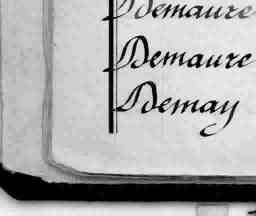 Demaure
Demaure
Demay